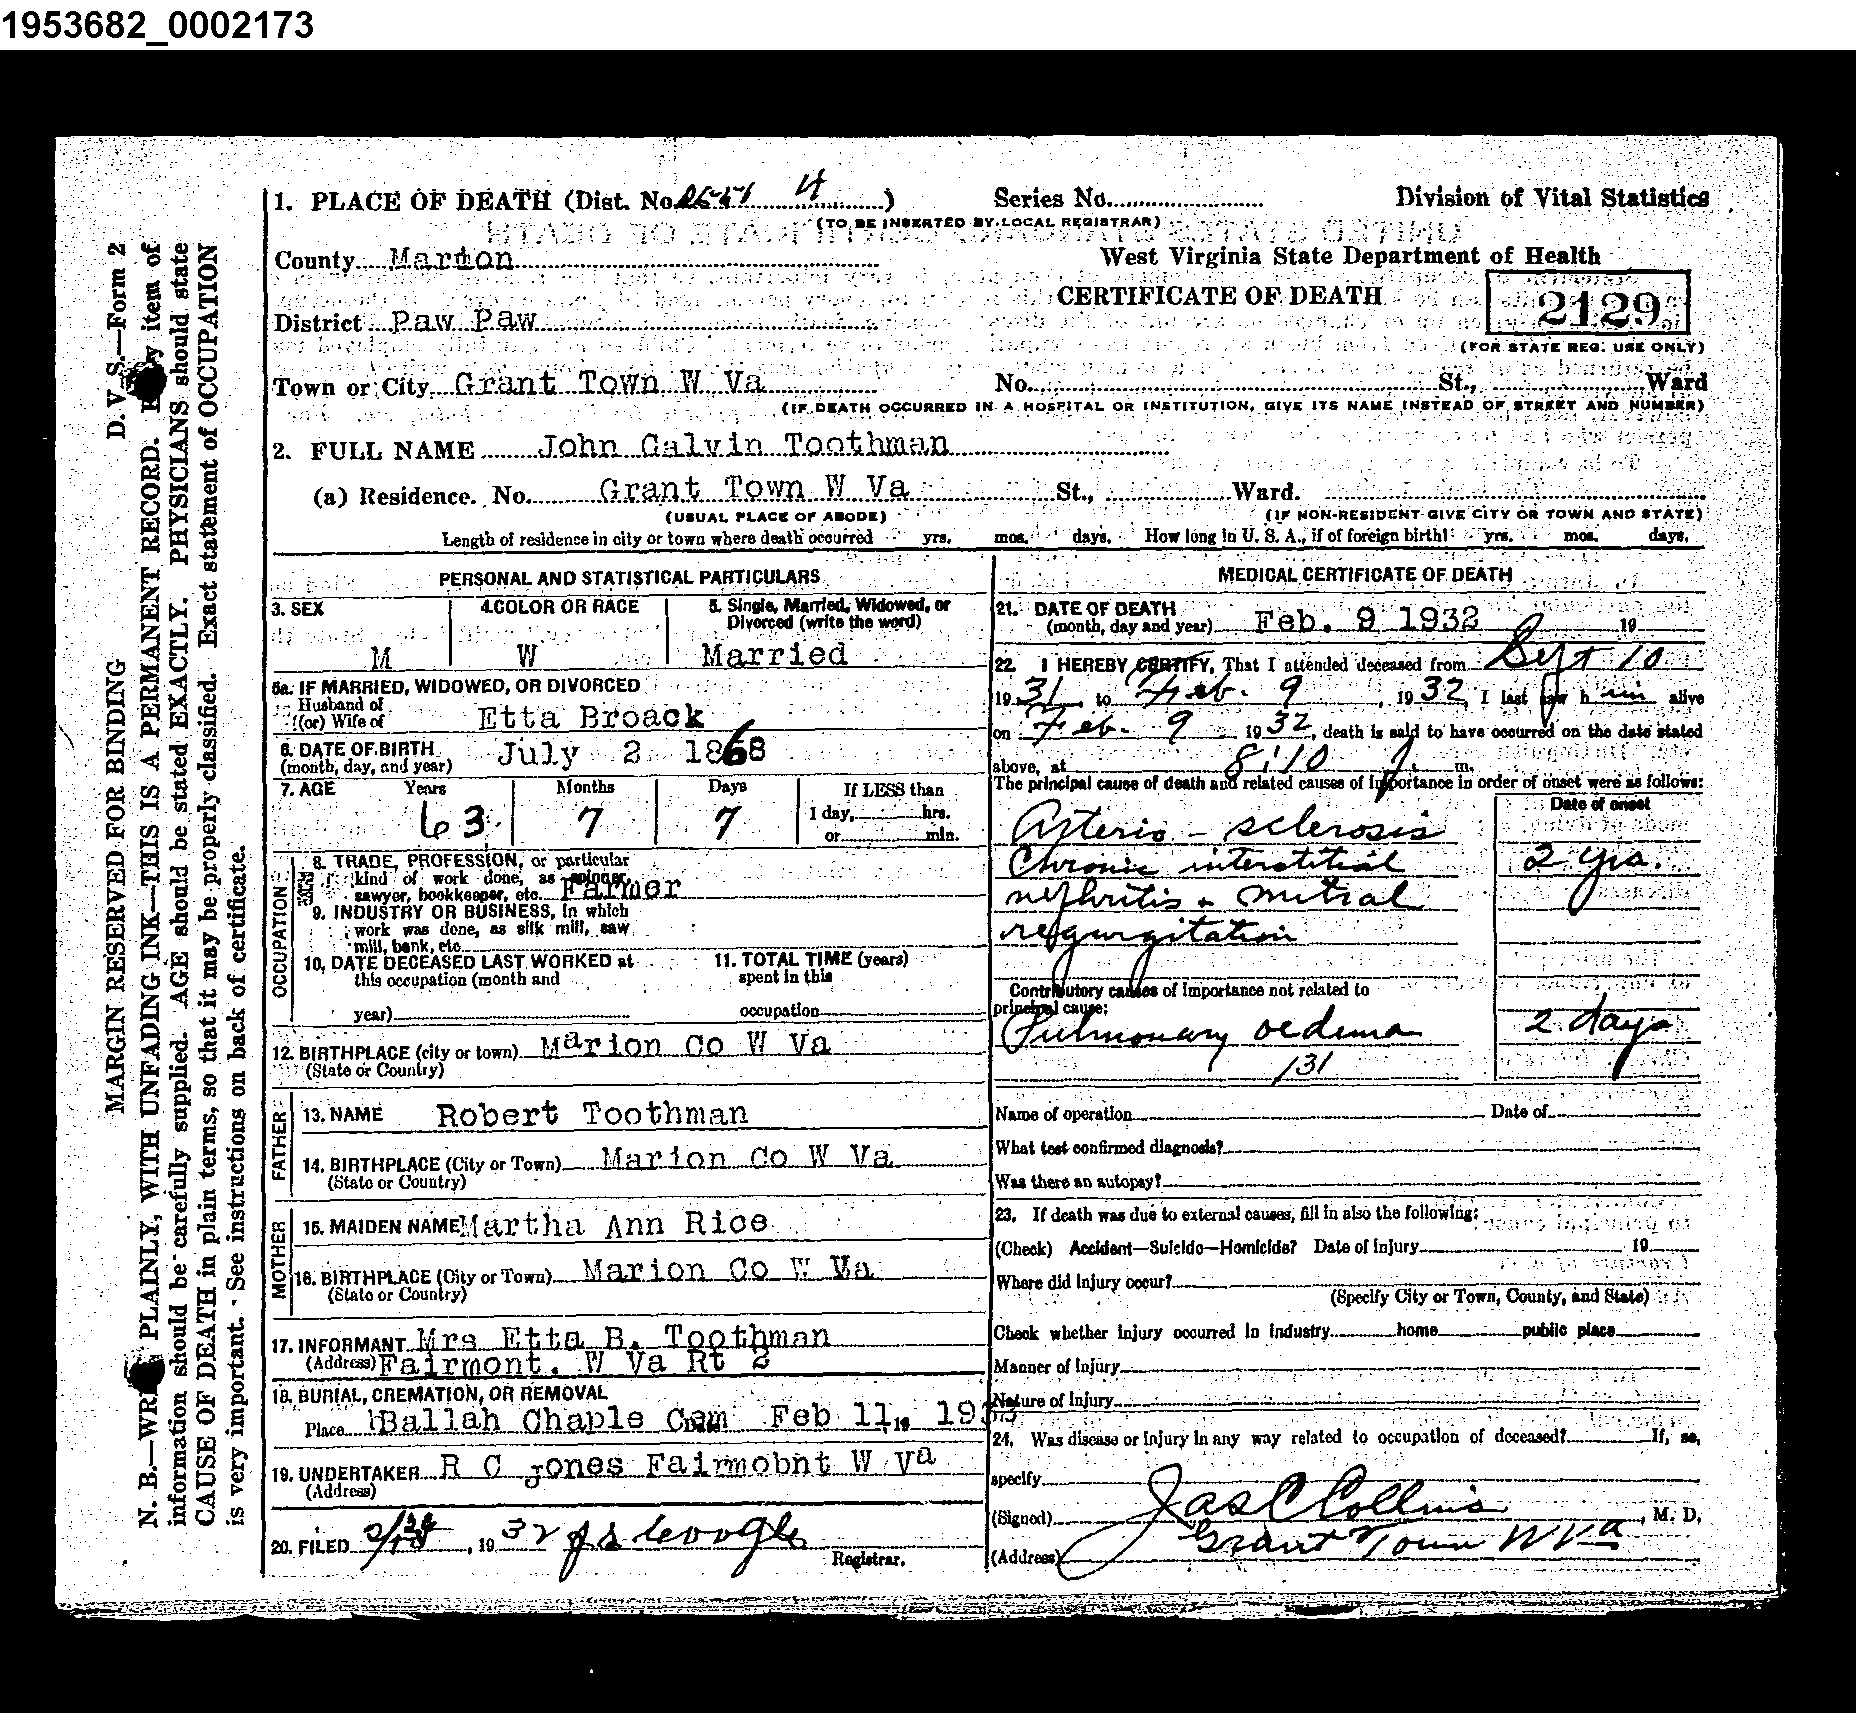 1953682_0002173
1. PLACE OF DEATH (Dist. No. 2551 4) Series No. Division of Vital Statistics
(TO BE INSERTED BY LOCAL REGISTRAR)
County Marion West Virginia State Department of Health
CERTIFICATE OF DEATH 2129
District Paw Paw
(FOR STATE REG. USE ONLY)
Town or City Grant Town W Va No. St., Ward
(IF DEATH OCCURRED IN A HOSPITAL OR INSTITUTION, GIVE ITS NAME INSTEAD OF STREET AND NUMBER)
2. FULL NAME John Calvin Toothman
(a) Residence. No. Grant Town W Va St., Ward.
(USUAL PLACE OF ABODE) (IF NON-RESIDENT GIVE CITY OR TOWN AND STATE)
Length of residence in city or town where death occurred yrs. mos. days. How long in U. S. A., if of foreign birth? yrs. mos. days.
PERSONAL AND STATISTICAL PARTICULARS
3. SEX 4. COLOR OR RACE 5. Single, Married, Widowed, or
Divorced (write the word)
M W Married
5a. IF MARRIED, WIDOWED, OR DIVORCED
Husband of
(or) Wife of Etta Broack
6. DATE OF BIRTH July 2 1868
(month, day, and year)
7. AGE Years Months Days If LESS than
63 7 7 1 day, hrs.
or min.
OCCUPATION
8. TRADE, PROFESSION, or particular
kind of work done, as spinner,
sawyer, bookkeeper, etc. Farmer
9. INDUSTRY OR BUSINESS, in which
work was done, as silk mill, saw
mill, bank, etc.
10. DATE DECEASED LAST WORKED at 11. TOTAL TIME (years)
this occupation (month and spent in this
year) occupation
12. BIRTHPLACE (city or town) Marion Co W Va
(State or Country)
FATHER
13. NAME Robert Toothman
14. BIRTHPLACE (City or Town) Marion Co W Va
(State or Country)
MOTHER
15. MAIDEN NAME Martha Ann Rice
16. BIRTHPLACE (City or Town) Marion Co W Va
(State or Country)
17. INFORMANT Mrs Etta B. Toothman
(Address) Fairmont. W Va Rt 2
18. BURIAL, CREMATION, OR REMOVAL
Place Ballah Chaple Cem Feb 11, 19 193
19. UNDERTAKER R C jones Fairmobnt W Va
(Address)
20. FILED 19 32 Registrar.
MEDICAL CERTIFICATE OF DEATH
21. DATE OF DEATH
(month, day and year) Feb. 9 1932 19
22. I HEREBY CERTIFY, That I attended deceased from Sept 10
19 31 to Feb. 9, 19 32, I last saw h im alive
on Feb. 9 19 32, death is said to have occurred on the date stated
above, at 8:10 P. m.
The principal cause of death and related causes of importance in order of onset were as follows:
Date of onset
Arterio-sclerosis
Chronic interstitial 2 yrs.
nephritis + mitral
regurgitation
Contributory causes of importance not related to
principal cause:
Pulmonary oedema 2 days
131
Name of operation Date of
What test confirmed diagnosis?
Was there an autopsy?
23. If death was due to external causes, fill in also the following:
(Check) Accident—Suicide—Homicide? Date of injury 19
Where did injury occur?
(Specify City or Town, County, and State)
Check whether injury occurred in industry home public place
Manner of Injury
Nature of Injury
24. Was disease or injury in any way related to occupation of deceased? If, so,
specify
(Signed) Jas C Collins, M. D.
(Address) Grant Town W Va
D. V. S.—Form 2
MARGIN RESERVED FOR BINDING
N. B.—WRITE PLAINLY, WITH UNFADING INK—THIS IS A PERMANENT RECORD. Every item of
information should be carefully supplied. AGE should be stated EXACTLY. PHYSICIANS should state
CAUSE OF DEATH in plain terms, so that it may be properly classified. Exact statement of OCCUPATION
is very important. See instructions on back of certificate.